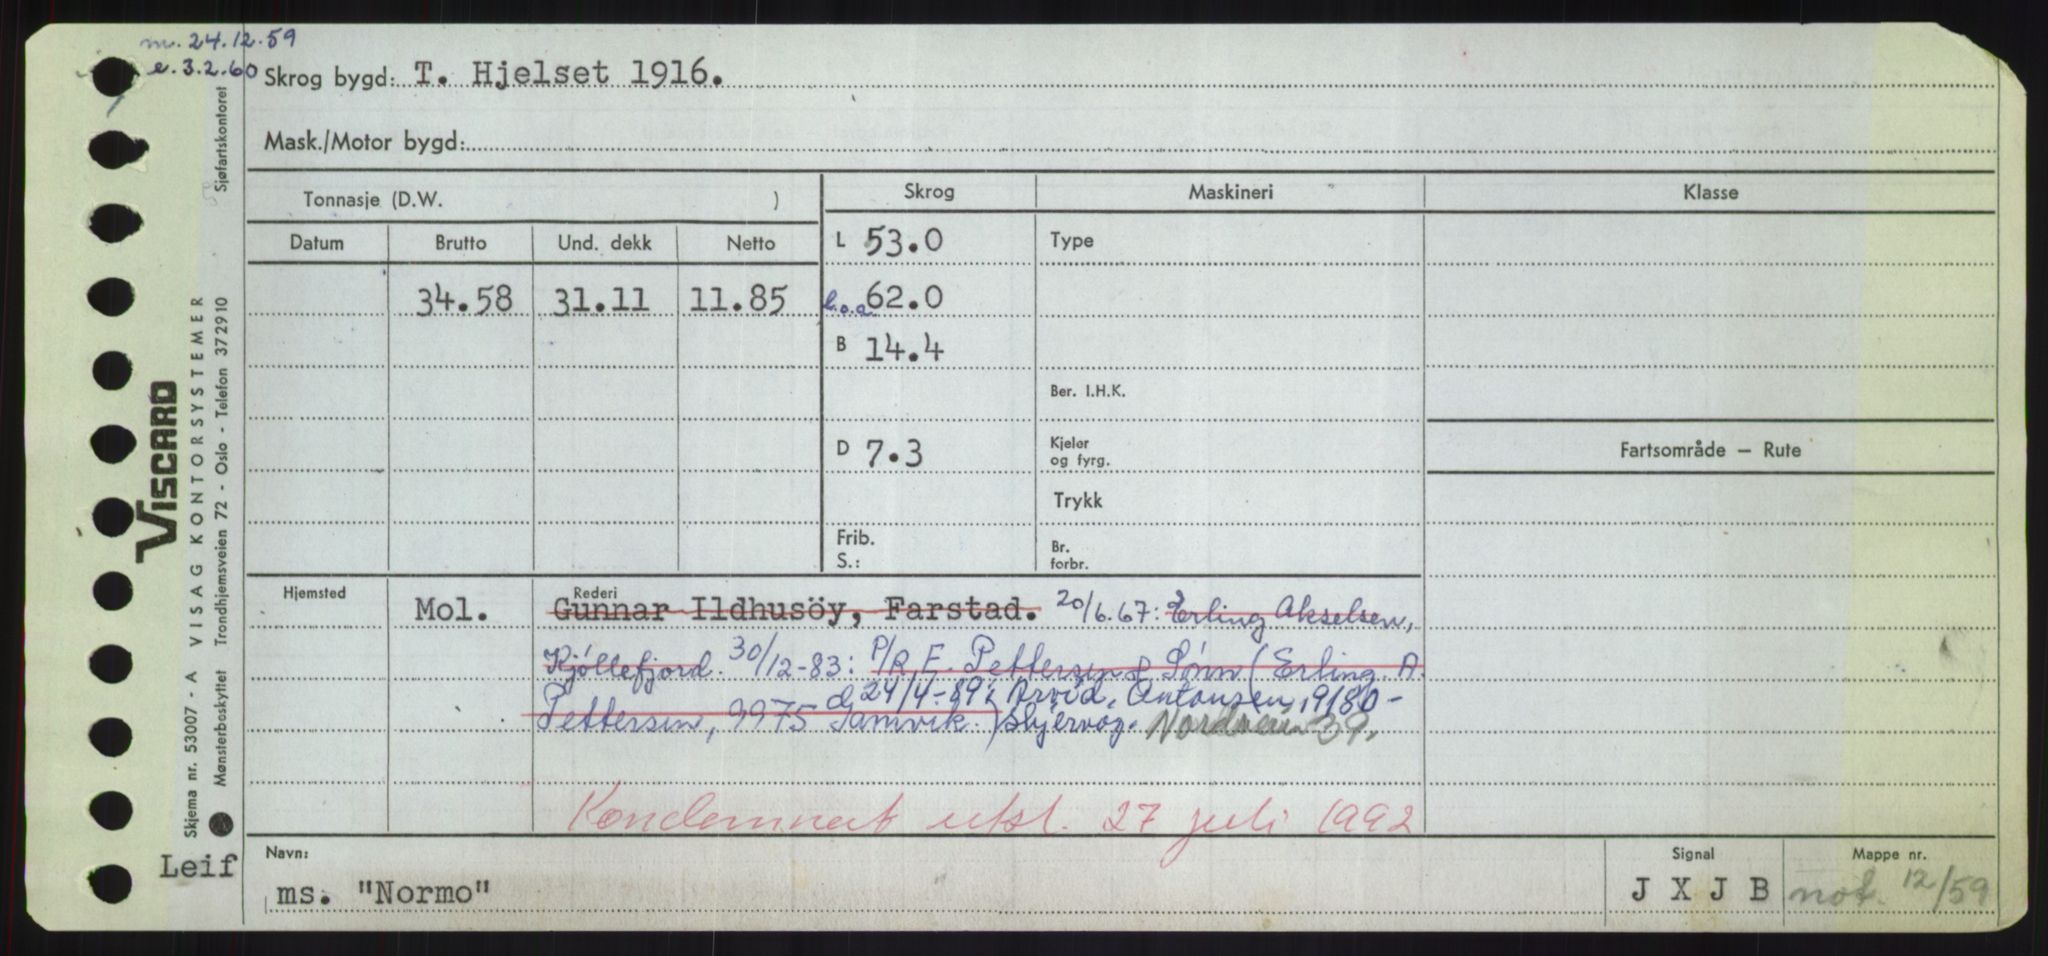 m. 24.12.59
e. 3.2.60
Skrog bygd: T. Hjelset 1916.
Mask./Motor bygd:
Tonnasje (D.W. )
Skrog
Maskineri
Klasse
Datum
Brutto
Und. dekk
Netto
L 53.0
Type
34.58
31.11
11.85
l.o.a 62.0
B 14.4
Ber. I.H.K.
Fartsområde — Rute
D 7.3
Kjeler
og fyrg.
Trykk
Frib.
S.:
Br.
forbr.
Hjemsted
Mol.
Rederi
Gunnar Ildhusöy, Farstad. 20/6.67: Erling Akselsen,
Kjöllefjord. 30/12-83: P/R E. Pettersen & Sønn (Erling A.
24/4-89: Arvid Antonsen, 9180-
Pettersen, 9975 Lamvik.) Skjervøy. Nordveien 39.
Kondemnert utsl. 27 juli 1992
Leif
Navn:
ms. "Normo"
Signal
J X J B
Mappe nr.
not. 12/59
VISCARD
VISAG KONTORSYSTEMER
Sjøfartskontoret
Skjema nr. 53007 - A
Mønsterbeskyttet Trondhjemsveien 72 - Oslo - Telefon 372910